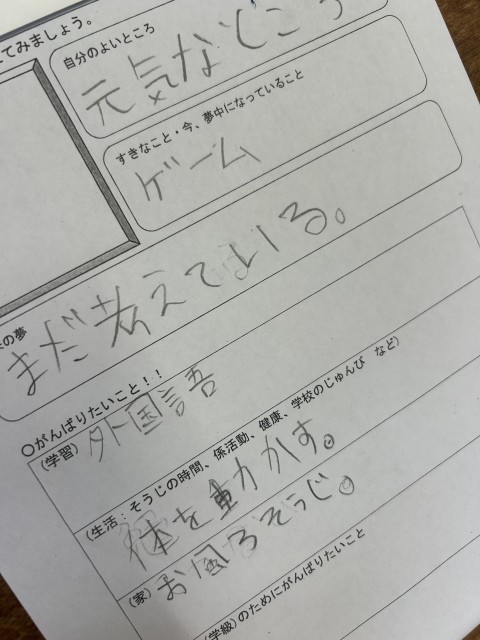 てみましょう。
自分のよいところ
元気なところ
すきなこと・今、夢中になっていること
ゲーム
の夢
まだ考えている。
○がんばりたいこと！！
(学習)
外国言吾
(生活：そうじの時間、係活動、健康、学校のじゅんび など)
体を動かす。
(家)
お風ろそうじ。
(学級)のためにがんばりたいこと